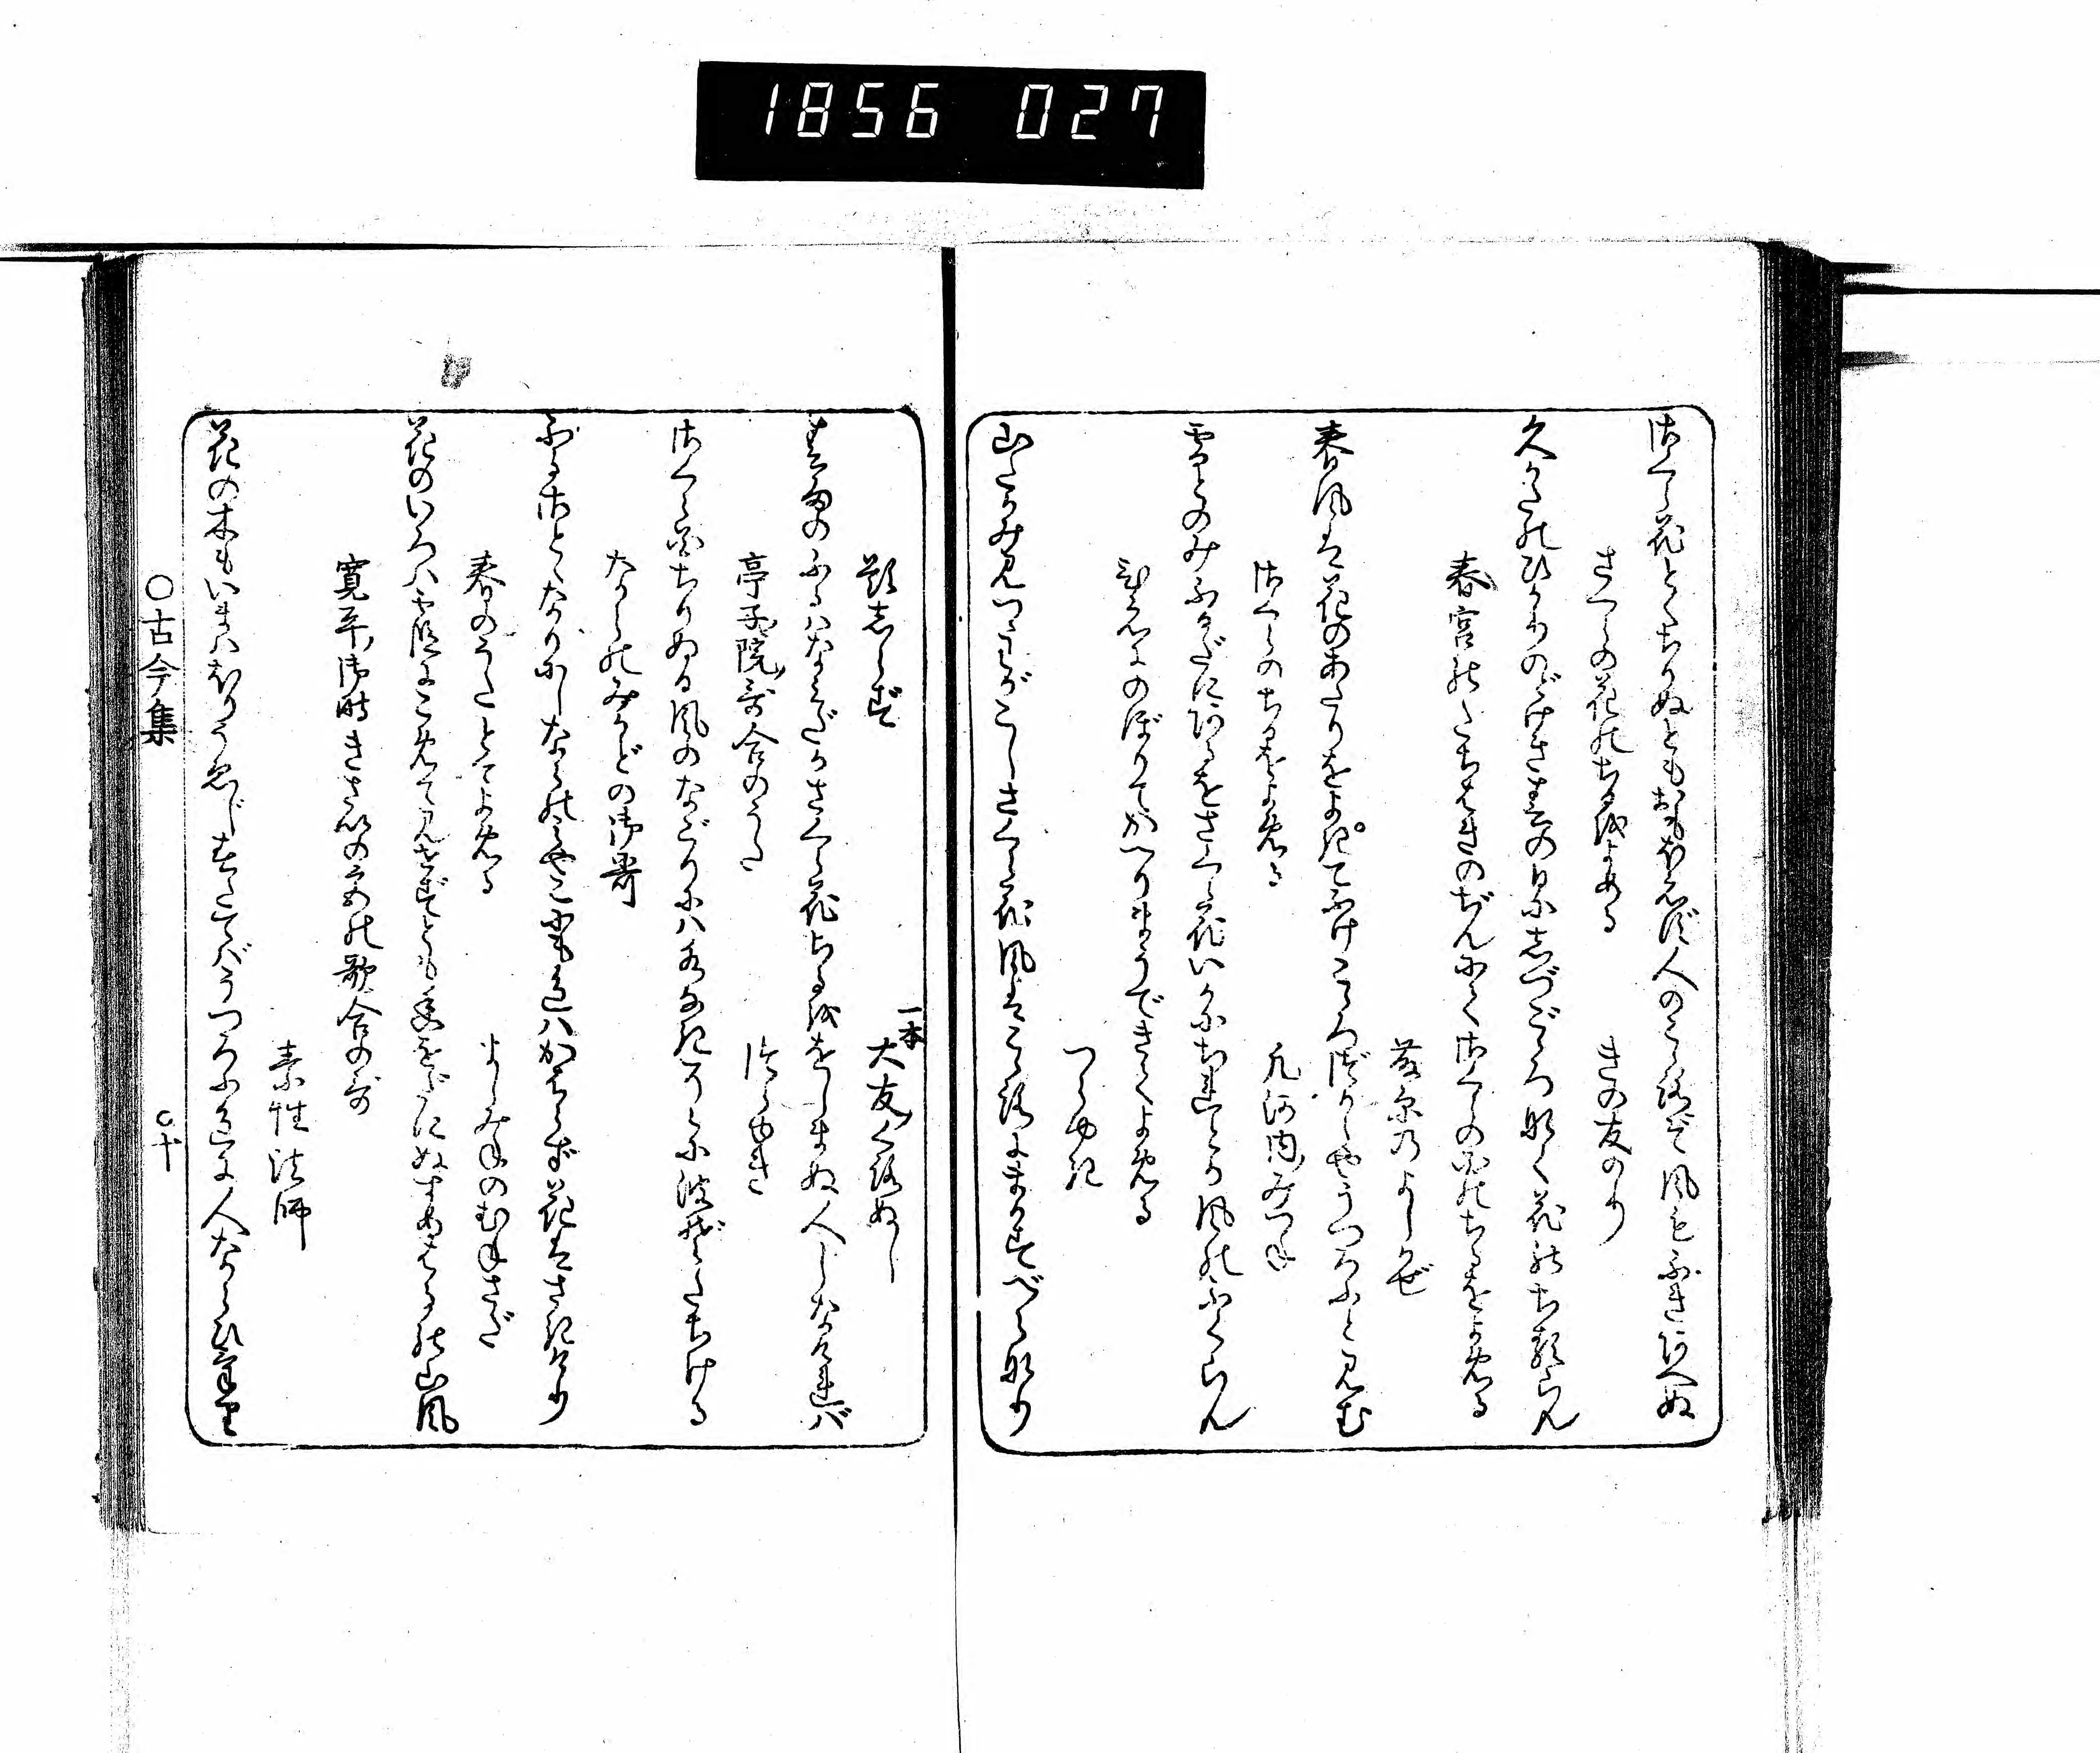 1856 027
さくら花とくちりぬともおもほえず人のこゝろぞ風もふきあへぬ
さくらの花のちるをよめる
きの友のり
久かたのひかりのどけき春の日にしづごゝろなく花のちるらん
春宮のたちはきのぢんにてさくらの花のちるをよめる
藤原のよしかぜ
春風は花のあたりをよきてふけこゝろづからやうつろふと見む
さくらのちるをよめる
凡河内みつね
雪とのみふるだにあるをさくら花いかにちれとか風のふくらん
ひえにのぼりてかへりまうできてよめる
つらゆき
山たかみ見つゝわがこしさくら花風はこゝろにまかすべらなり
題しらず
一本大友くろぬし
春雨のふるはなみだかさくら花ちるををしまぬ人しなければ
亭子院哥合のうた
つらゆき
さくら花ちりぬる風のなごりにハ水なきそらに波ぞたちける
ならのみかどの御哥
ふるさとゝなりにしならのみやこにも色ハかはらず花はさきけり
春のうたとてよめる
よしみねのむねさだ
花のいろハ霞にこめて見せずとも香をだにぬすめはるの山風
寛平御時きさいの宮の歌合の哥
素性法師
花の木もいまハほりうゑじ春たてバうつろふ色に人ならひけり
〇古今集
〇十